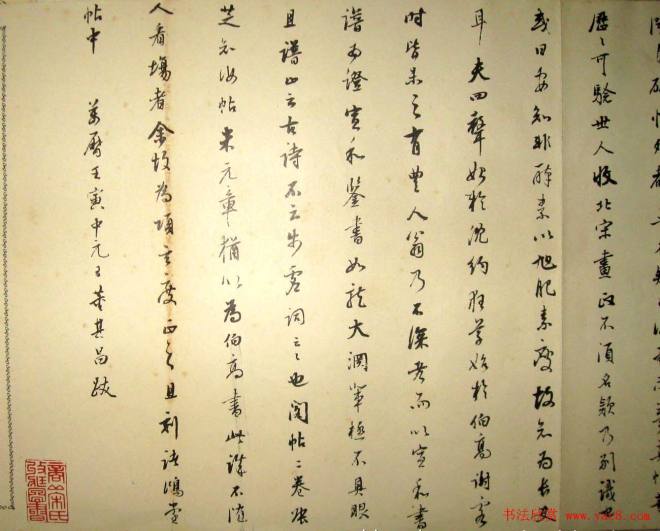 歷〻可驗世人收北宋畫政不須名款乃別識也
或曰安知非醉素以旭肥素瘦故知為長史
耳夫四聲始於沈約狂草始於伯高謝客
時皆未之有豐人翁乃不深考而以宣和書
譜為證宣和鑒書如龍大淵輩極不具眼
且譜止云古詩不云步虛詞云〻也閣帖二卷張
芝知汝帖米元章猶以為伯高書此訣不隨
人看場者余故為項玄度正之且刻諸鴻堂
帖中 萬曆壬寅中元日董其昌跋
书法欣赏 www.yac8.com